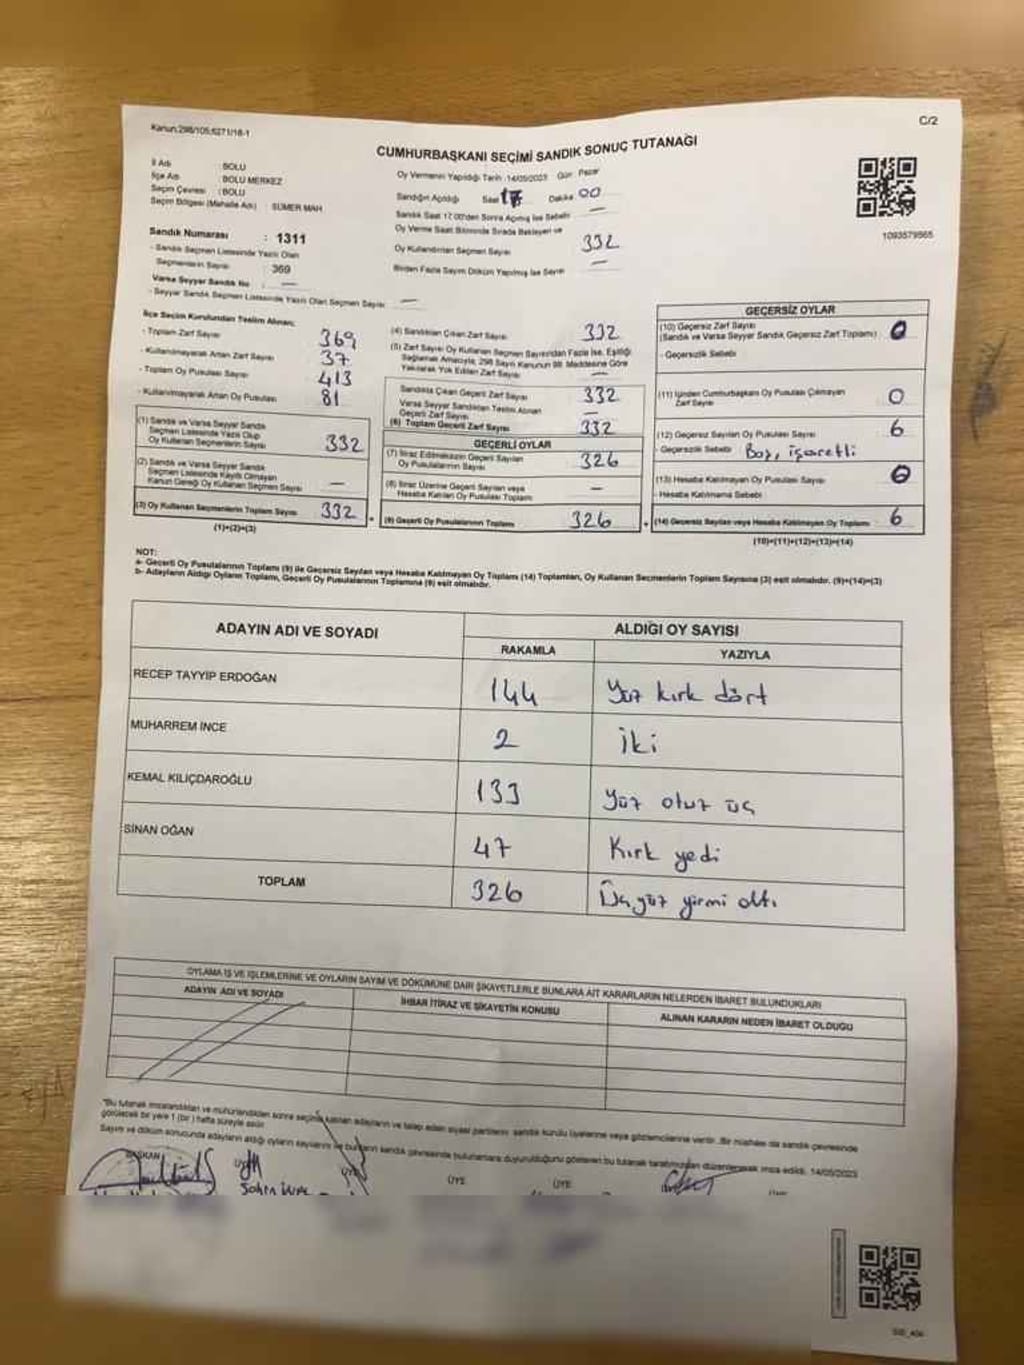 Kanun:298/105;6271/18-1
C/2
CUMHURBAŞKANI SEÇİMİ SANDIK SONUÇ TUTANAĞI
İl Adı : BOLU
İlçe Adı : BOLU MERKEZ
Seçim Çevresi : BOLU
Seçim Bölgesi (Mahalle Adı) : SÜMER MAH
Oy Vermenin Yapıldığı Tarih :14/05/2023 Gün Pazar
Sandığın Açıldığı Saat 17 Dakika 00
Sandık Saat 17.00'den Sonra Açılmış İse Sebebi —
Oy Verme Saati Bitiminde Sırada Bekleyen ve
Oy Kullandırılan Seçmen Sayısı 332
Birden Fazla Sayım Döküm Yapılmış İse Sayısı —
1093579865
Sandık Numarası : 1311
- Sandık Seçmen Listesinde Yazılı Olan
Seçmenlerin Sayısı : 369
Varsa Seyyar Sandık No : —
- Seyyar Sandık Seçmen Listesinde Yazılı Olan Seçmen Sayısı —
İlçe Seçim Kurulundan Teslim Alınan;
- Toplam Zarf Sayısı 369
- Kullanılmayarak Artan Zarf Sayısı 37
- Toplam Oy Pusulası Sayısı 413
- Kullanılmayarak Artan Oy Pusulası 81
(1) Sandık ve Varsa Seyyar Sandık
Seçmen Listesinde Yazılı Olup
Oy Kullanan Seçmenlerin Sayısı 332
(2) Sandık ve Varsa Seyyar Sandık
Seçmen Listesinde Kayıtlı Olmayan
Kanun Gereği Oy Kullanan Seçmen Sayısı —
(3) Oy Kullanan Seçmenlerin Toplam Sayısı 332
(1)+(2)=(3)
(4) Sandıktan Çıkan Zarf Sayısı 332
(5) Zarf Sayısı Oy Kullanan Seçmen Sayısından Fazla İse, Eşitliği
Sağlamak Amacıyla, 298 Sayılı Kanunun 98. Maddesine Göre
Yakılarak Yok Edilen Zarf Sayısı —
Sandıkta Çıkan Geçerli Zarf Sayısı 332
Varsa Seyyar Sandıktan Teslim Alınan
Geçerli Zarf Sayısı —
(6) Toplam Geçerli Zarf Sayısı 332
GEÇERLİ OYLAR
(7) İtiraz Edilmeksizin Geçerli Sayılan
Oy Pusulalarının Sayısı 326
(8) İtiraz Üzerine Geçerli Sayılan veya
Hesaba Katılan Oy Pusulası Toplamı —
(9) Geçerli Oy Pusulalarının Toplamı 326
GEÇERSİZ OYLAR
(10) Geçersiz Zarf Sayısı
(Sandık ve Varsa Seyyar Sandık Geçersiz Zarf Toplamı) 0
- Geçersizlik Sebebi
(11) İçinden Cumhurbaşkanı Oy Pusulası Çıkmayan
Zarf Sayısı 0
(12) Geçersiz Sayılan Oy Pusulası Sayısı 6
- Geçersizlik Sebebi Boş, işaretli
(13) Hesaba Katılmayan Oy Pusulası Sayısı 0
- Hesaba Katılmama Sebebi
(14) Geçersiz Sayılan veya Hesaba Katılmayan Oy Toplamı 6
(10)+(11)+(12)+(13)=(14)
NOT:
a- Geçerli Oy Pusulalarının Toplamı (9) ile Geçersiz Sayılan veya Hesaba Katılmayan Oy Toplamı (14) Toplamları, Oy Kullanan Seçmenlerin Toplam Sayısına (3) eşit olmalıdır. (9)+(14)=(3)
b- Adayların Aldığı Oyların Toplamı, Geçerli Oy Pusulalarının Toplamına (9) eşit olmalıdır.
ADAYIN ADI VE SOYADI ALDIĞI OY SAYISI
RAKAMLA YAZIYLA
RECEP TAYYİP ERDOĞAN 144 Yüz kırk dört
MUHARREM İNCE 2 İki
KEMAL KILIÇDAROĞLU 133 Yüz otuz üç
SİNAN OĞAN 47 Kırk yedi
TOPLAM 326 Üçyüz yirmi altı
OYLAMA İŞ VE İŞLEMLERİNE VE OYLARIN SAYIM VE DÖKÜMÜNE DAİR ŞİKAYETLERLE BUNLARA AİT KARARLARIN NELERDEN İBARET BULUNDUKLARI
ADAYIN ADI VE SOYADI İHBAR İTİRAZ VE ŞİKAYETİN KONUSU ALINAN KARARIN NEDEN İBARET OLDUĞU
*Bu tutanak imzalandıktan ve mühürlendikten sonra seçime katılan adayların ve talep eden siyasi partilerin sandık kurulu üyelerine veya gözlemcilerine verilir. Bir nüshası da sandık çevresinde
görülecek bir yere 1 (bir) hafta süreyle asılır.
Sayım ve döküm sonucunda adayların aldığı oyların sayılarını ve bunların sandık çevresinde bulunanlara duyurulduğunu gösteren bu tutanak tarafımızdan düzenlenerek imza edildi. 14/05/2023
BAŞKAN ÜYE ÜYE ÜYE ÜYE